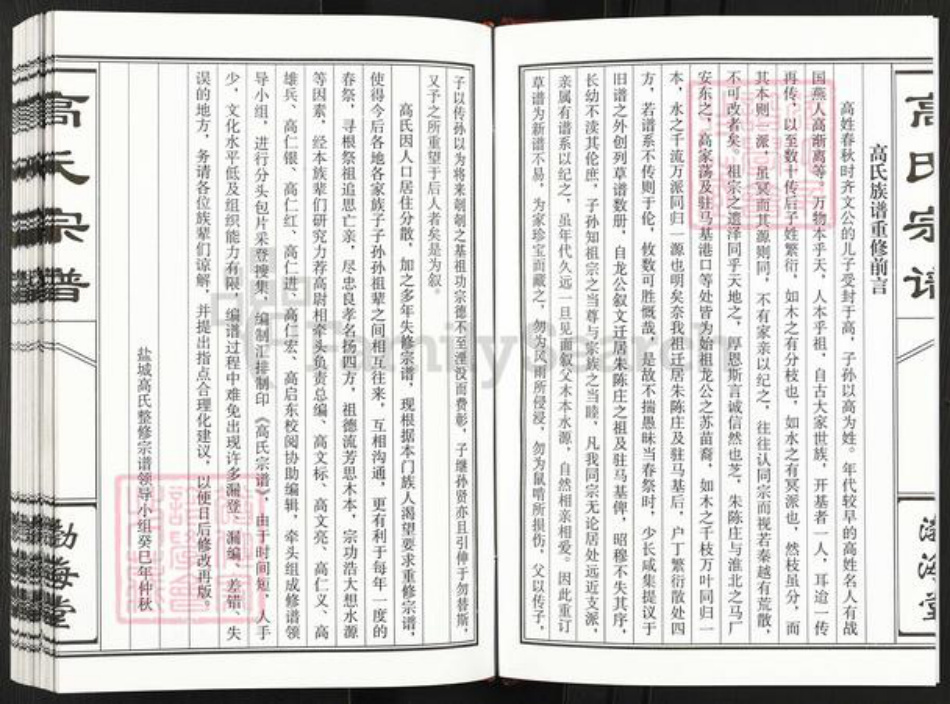 高氏宗谱
渤海堂
高氏族谱重修前言
高姓春秋时齐文公的儿子受封于高，子孙以高为姓。年代较早的高姓名人有战
国燕人高渐离等。万物本乎天，人本乎祖，自古大家世族，开基者一人，耳迨一传
再传，以至数十传后子姓繁衍，如木之有分枝也，如水之有冥派也，然枝虽分，而
其本则一派，虽冥而其源则同，不有家亲以纪之，往往认同宗而视若秦越有荒散，
不可改者矣。祖宗之遗泽同乎天地之，厚恩斯言诚信然也芝，朱陈庄与淮北之马厂
安东之，高家荡及驻马基港口等处皆为始祖龙公之苏苗裔，如木之千枝万叶同归一
本，水之千流万派同归一源也明矣奈我祖迁居朱陈庄及驻马基后，户丁繁衍散处四
方，若谱系不传则于伦，攸数可胜慨哉，是故不揣愚昧当春祭时，少长咸集提议于
旧谱之外创列草谱数册，自龙公叙文迁居朱陈庄之祖及驻马基俾，昭穆不失其序，
长幼不渎其伦庶，子孙知祖宗之当尊与家族之当睦，凡我同宗无论居处远近支派，
亲属有谱系以纪之，虽年代久远一旦见面叙父木本水源，自然相亲相爱。因此重订
草谱为新谱不易，为家珍宝而藏之，勿为风雨所侵浸，勿为鼠啃所损伤，父以传子，
子以传孙以为将来剞劂之基祖功宗德不至湮没而费彰，子继孙贤亦且引伸于勿替斯，
又予之所重望于后人者矣是为叙。
高氏因人口居住分散，加之多年失修宗谱，现根据本门族人渴望要求重修宗谱，
使得今后各地各家族子子孙孙祖辈之间相互往来，互相沟通，更有利于每年一度的
春祭，寻根祭祖追思亡亲，尽忠良孝名扬四方，祖德流芳思木本，宗功浩大想水源
等因素，经本族辈们研究力荐高尉相牵头负责总编、高文标、高文亮、高仁义、高
雄兵、高仁银、高仁红、高仁进、高仁宏、高启东校阅协助编辑，牵头组成修谱领
导小组，进行分头包片采登搜集、编制汇排制印《高氏宗谱》，由于时间短，人手
少，文化水平低及组织能力有限，编谱过程中难免出现许多漏登、漏编、差错、失
误的地方，务请各位族辈们谅解，并提出指点合理化建议，以便日后修改再版。
盐城高氏整修宗谱领导小组癸巳年仲秋
高氏宗谱
渤海堂
FamilySearch